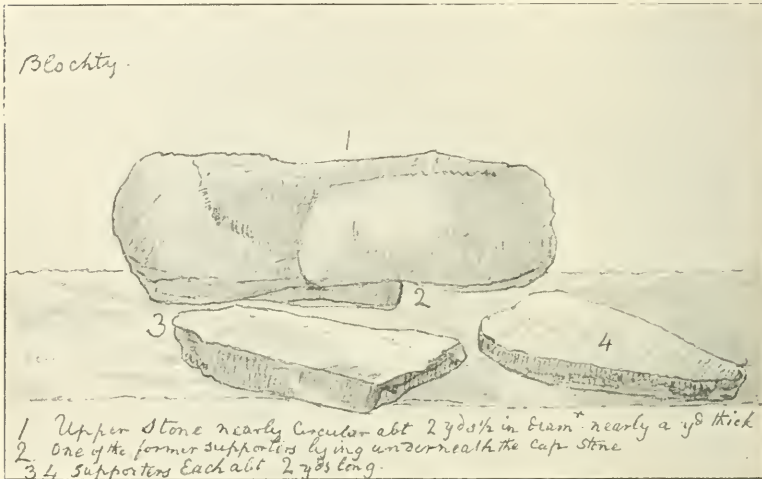 Blochty.
1
2
3
4
1 Upper Stone nearly Circular abt 2 yds ½ in diamr. nearly a yd thick
2. One of the former supporters lying underneath the Cap Stone
3 4 Supporters Each abt 2 yds long.